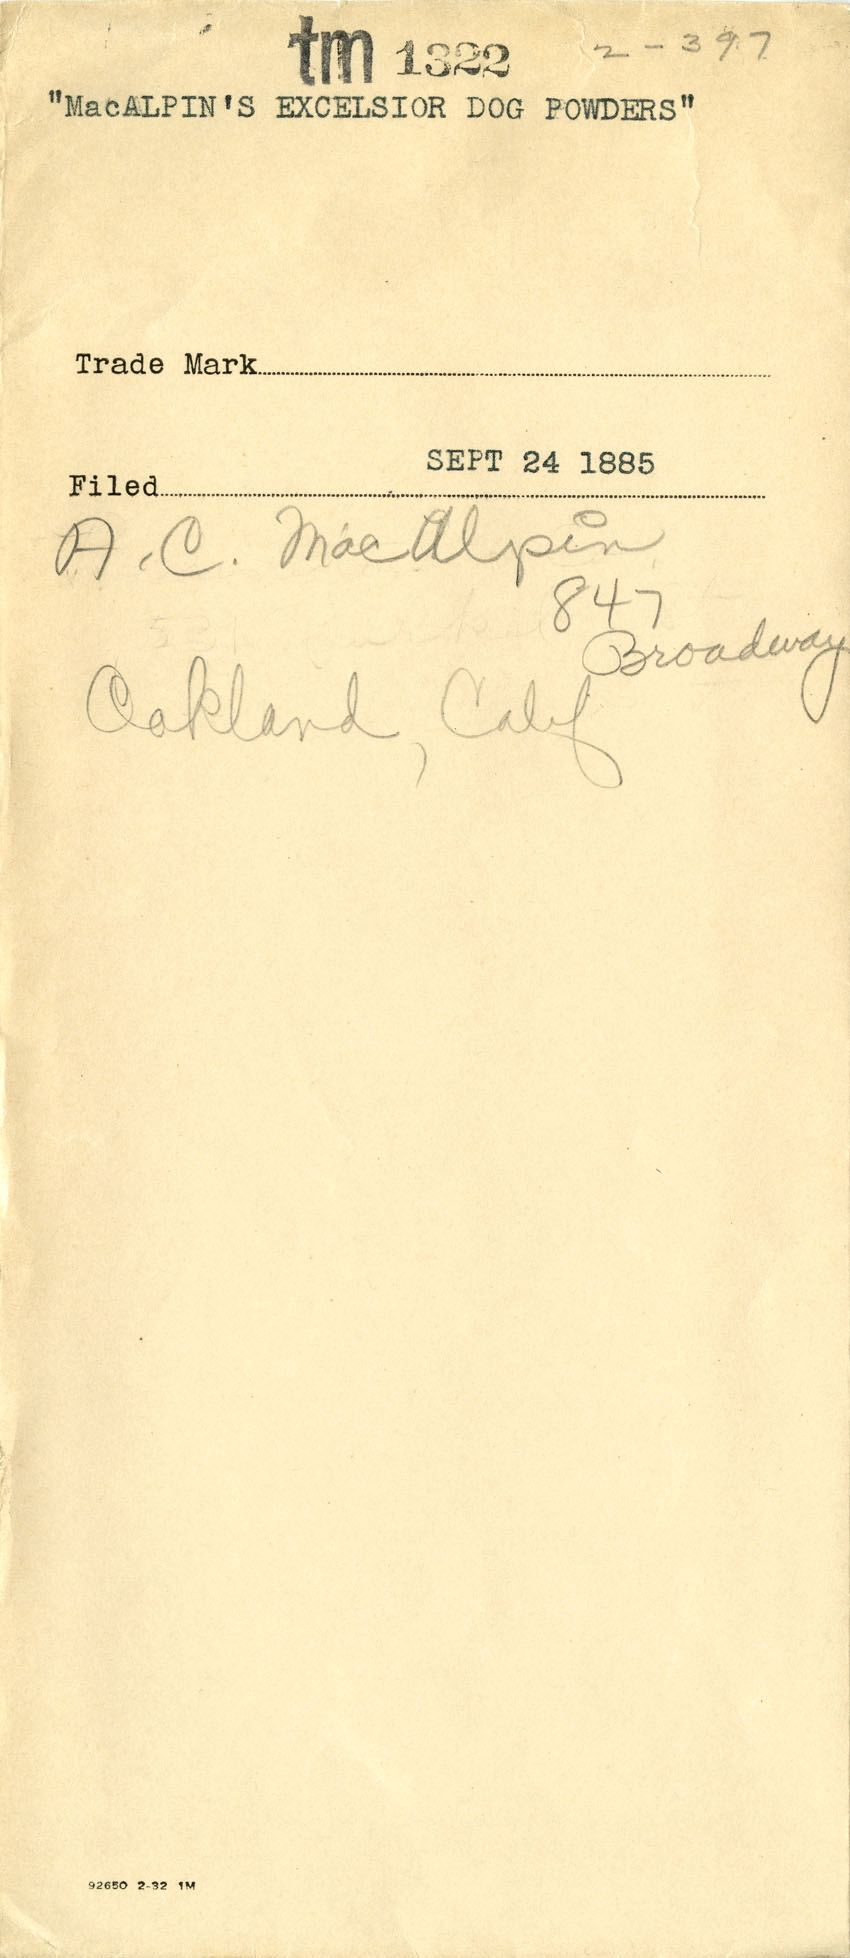 tm 1322 2-397
"MacALPIN'S EXCELSIOR DOG POWDERS"
Trade Mark
SEPT 24 1885
Filed
A. C. MacAlpin
847
Broadway
Oakland, Calif
92650 2-32 1M